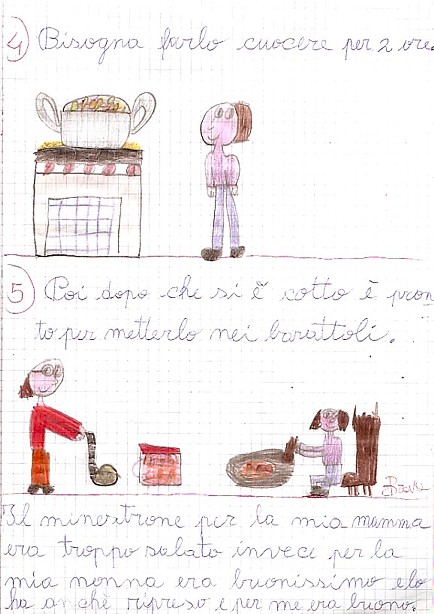 4) Bisogna farlo cuocere per 2 ore.
5) Poi dopo che si è cotto è pron
to per metterlo nei barattoli.
Brava
Il minestrone per la mia mamma
era troppo salato invece per la
mia nonna era buonissimo e lo
ha anche ripreso e per me era buono.